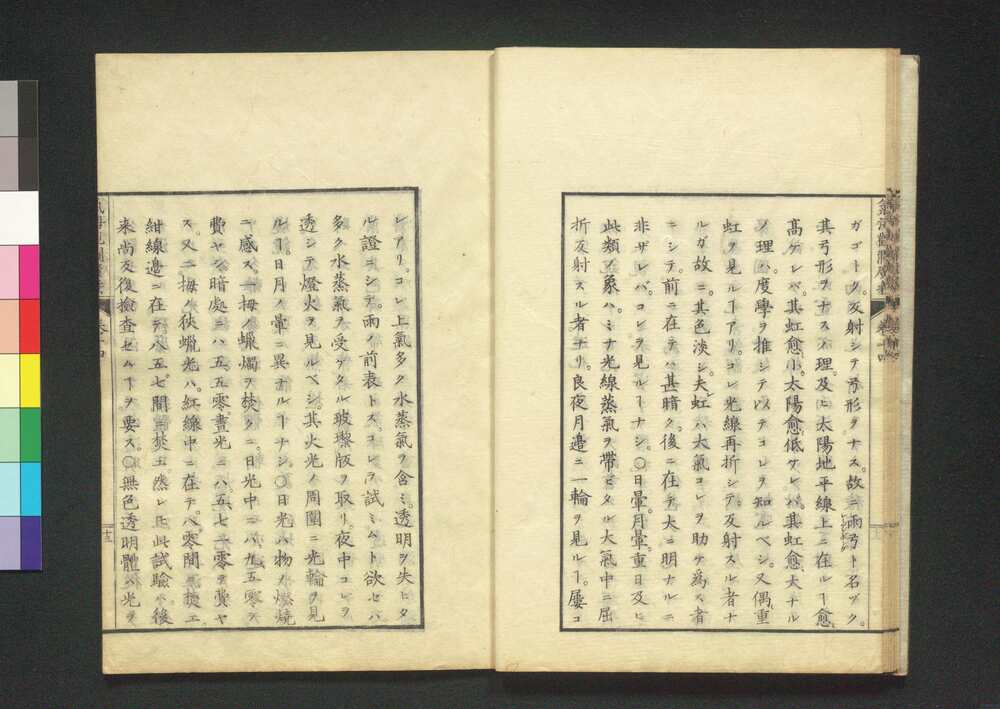 ガゴトク。反射シテ弓形ヲナス。故ニ雨弓ト名ヅク。
其弓形ヲナスノ理。及ビ太陽地平線上ニ在ルヿ愈
高ケレバ。其虹愈小。太陽愈低ケレバ。其虹愈大ナル
ノ理ハ。度學ヲ推シテ以テコレヲ知ルベシ。又偶重
虹ヲ見ルヿアリ。コレ光線再折シテ。反射スル者ナ
ルガ故ニ。其色淡シ。夫虹ハ大氣コレヲ助ケ為ス者
ニシテ。前ニ在テハ甚暗ク。後ニ在テ大ニ明ナルニ
非ザレバ。コレヲ見ルヿナシ。〇日暈。月暈。重日及ビ
此類ノ象ハ。ミナ光線蒸氣ヲ帶ビタル大氣中ニ屈
折反射スル者ナリ。良夜月邉ニ一輪ヲ見ルヿ。屢コ
氣海觀瀾廣義 卷十四
レアリ。コレ上氣多ク水蒸氣ヲ含ミ。透明ヲ失ヒタ
ル證ニシテ。雨ノ前表トス。コレヲ試ミムト欲セバ
多ク水蒸氣ヲ受ケタル玻瓈版ヲ取リ。夜中コレヲ
透シテ燈火ヲ見ルベシ。其火光ノ周圍ニ光輪ヲ見
ルヿ。日月ノ暈ニ異ナルヿナシ。〇日光ハ物ノ燃燒
ニ感ス。一拇ノ蠟燭ヲ焚クニ。日光中ニハ九五零ヲ
費ヤシ暗處ニハ五五零晝光ニハ五七二零ヲ費ヤ
ス。又二拇ノ狹蠟光ハ。紅線中ニ在テ八零間ニ焚エ
紺線邉ニ在テ八五七。間ニ焚エ。然レ𪜈此試驗ハ。後
來尚反復檢査セムヿヲ要ス。〇無色透明體ハ光ヲ
卷十四
十三